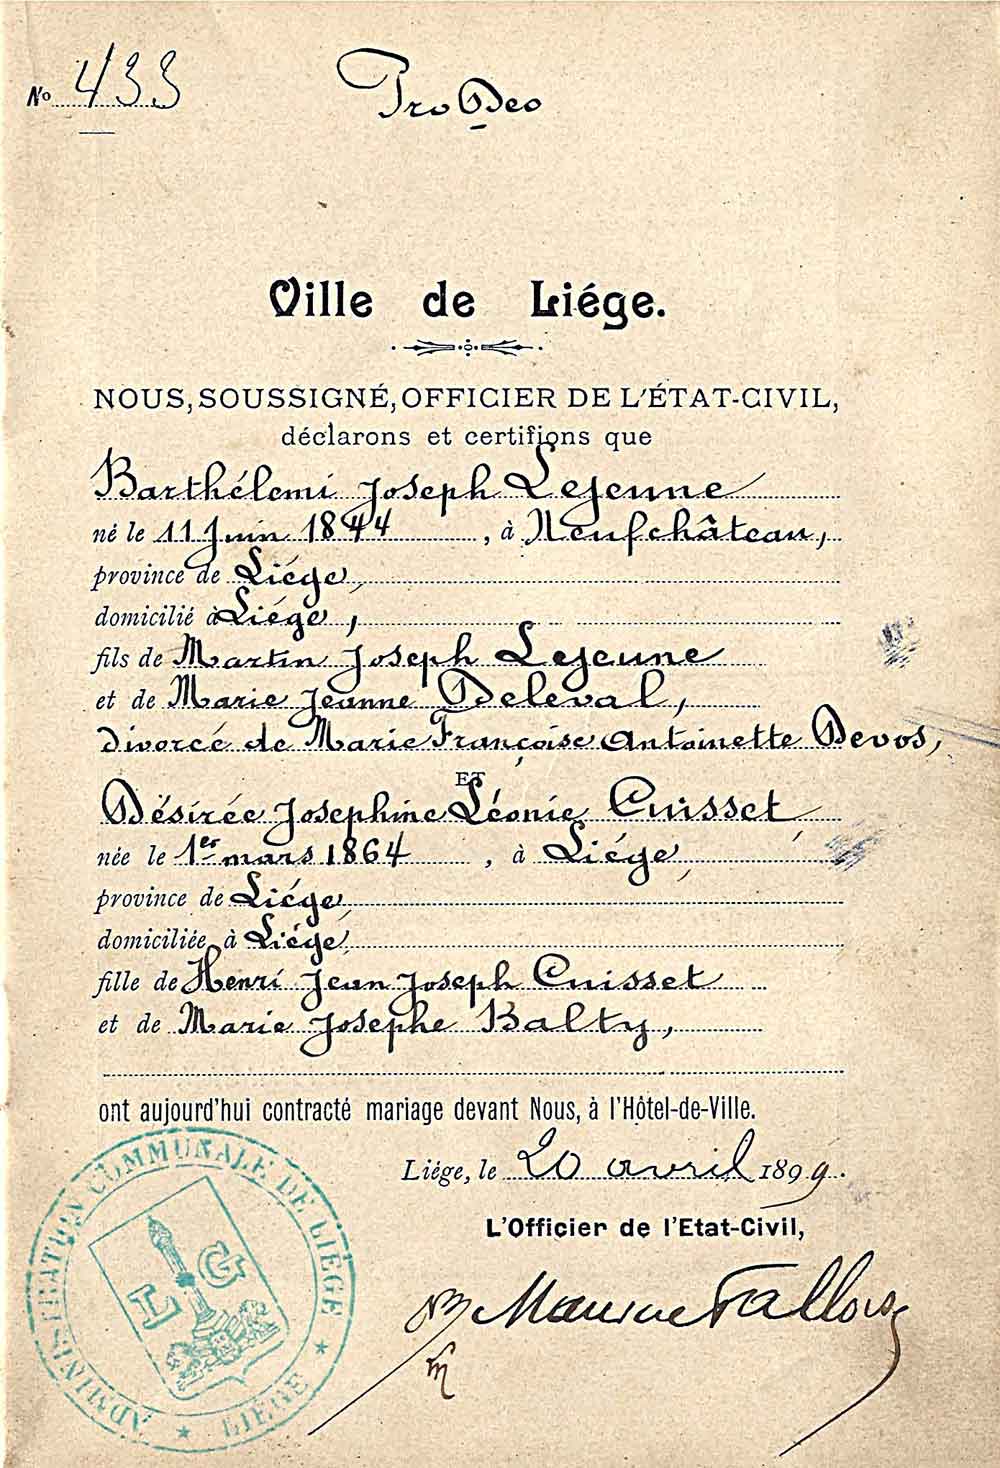 No 433
Pro Deo
Ville de Liége.
NOUS, SOUSSIGNÉ, OFFICIER DE L'ÉTAT-CIVIL,
déclarons et certifions que
Barthélemi Joseph Lejeune
né le 11 Juin 1844, à Neufchâteau,
province de Liége,
domicilié à Liége,
fils de Martin Joseph Lejeune
et de Marie Jeanne Deleval,
divorcé de Marie Françoise Antoinette Devos,
ET
Désirée Josephine Léonie Cuisset
née le 1er mars 1864, à Liége,
province de Liége,
domiciliée à Liége,
fille de Henri Jean Joseph Cuisset
et de Marie Josephe Balty,
ont aujourd'hui contracté mariage devant Nous, à l'Hôtel-de-Ville.
Liége, le 20 avril 1899.
L'Officier de l'Etat-Civil,
ADMINISTRATION COMMUNALE DE LIÈGE
L G
LIÈGE